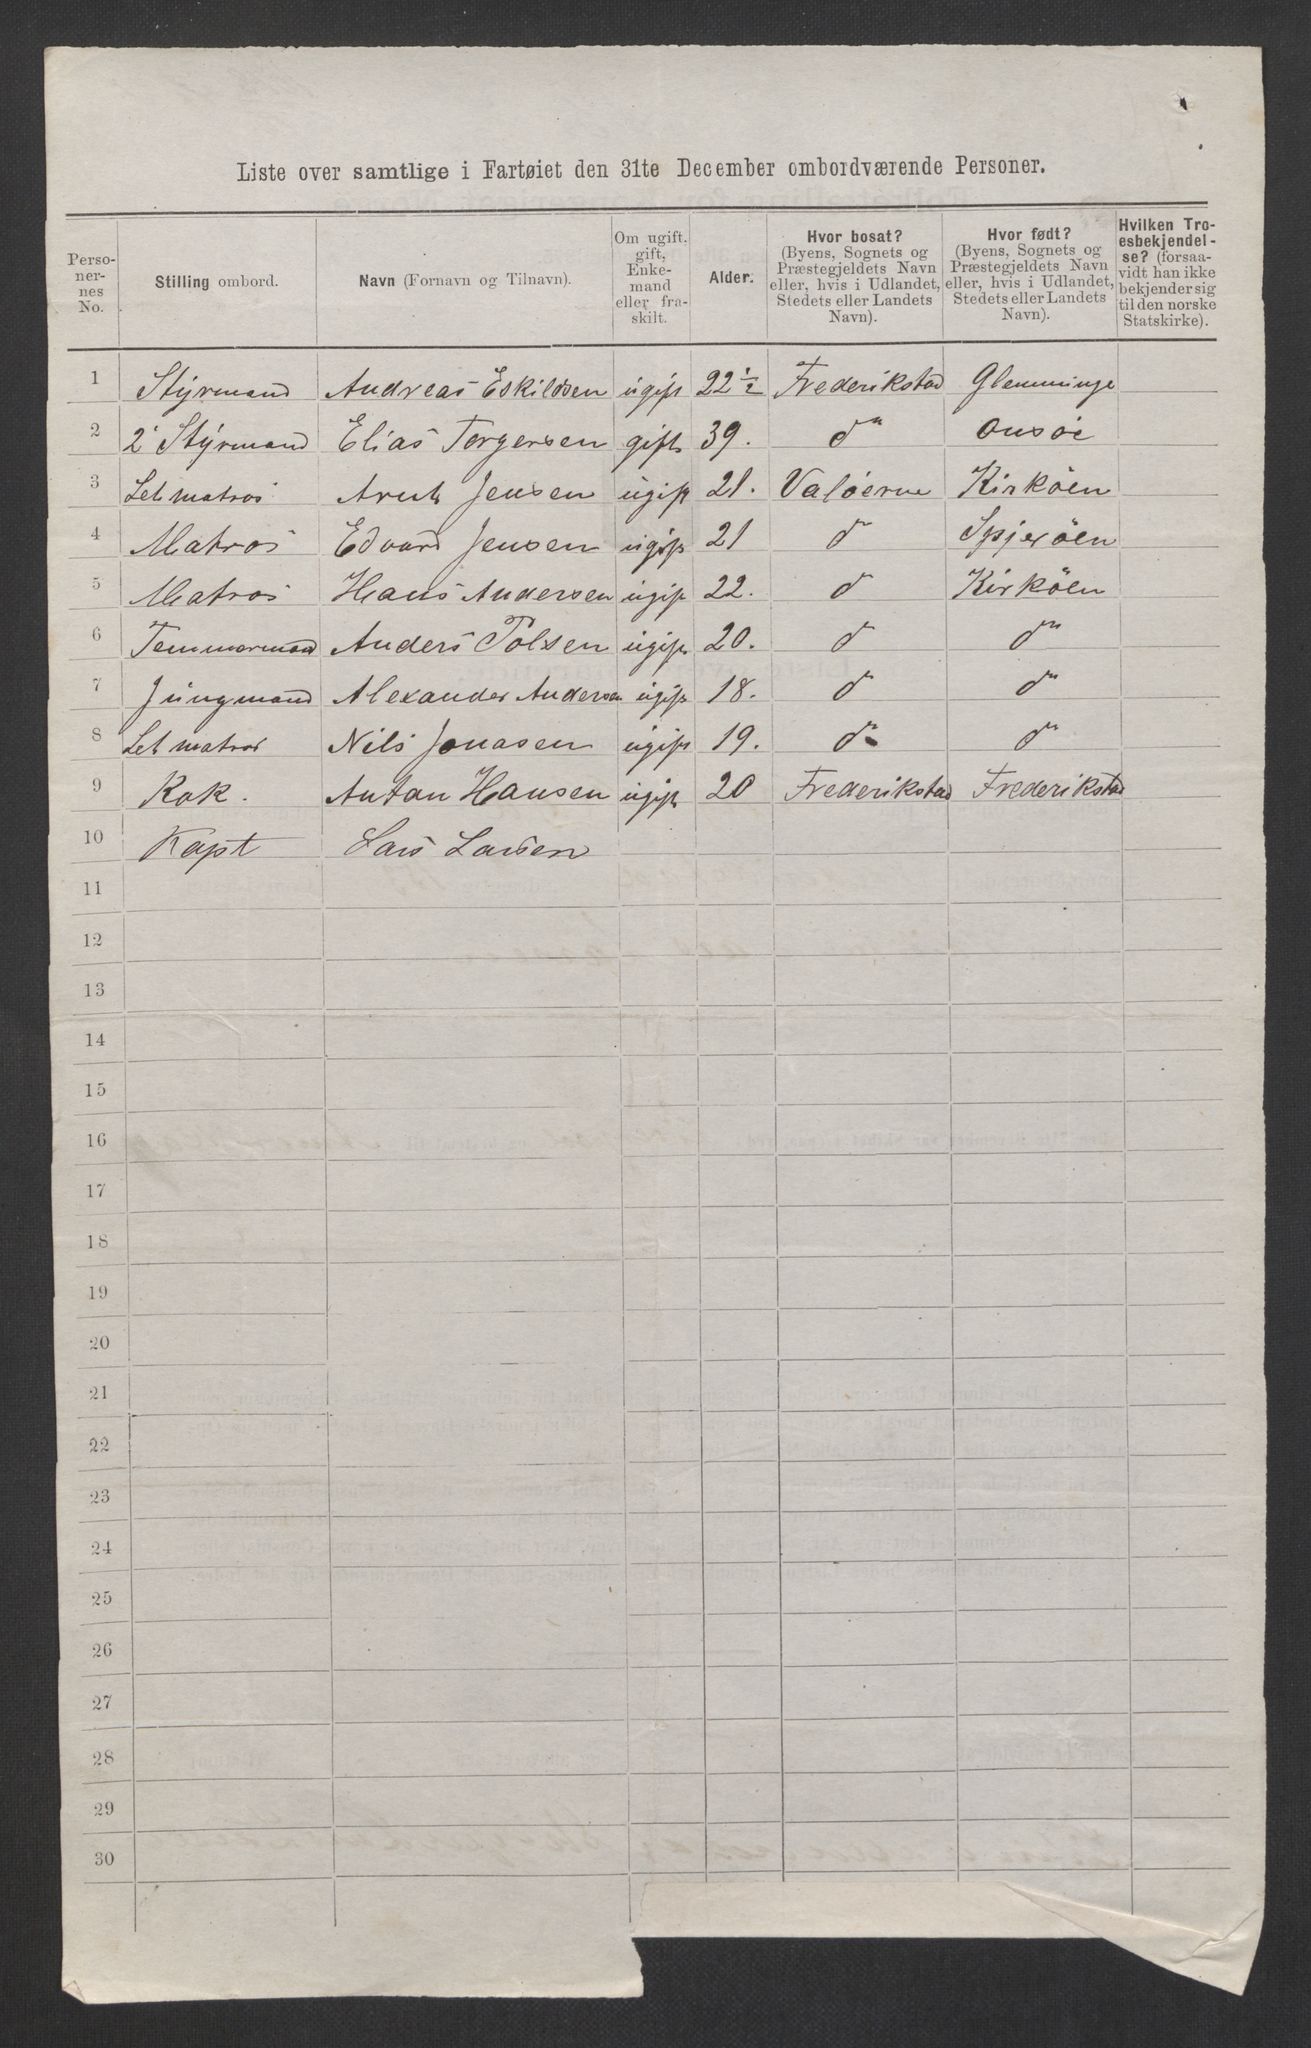 Liste over samtlige i Fartøiet den 31te December ombordværende Personer.
Perso-
ner-
nes
No.
Stilling ombord.
Navn (Fornavn og Tilnavn).
Om ugift,
gift,
Enke-
mand
eller fra-
skilt.
Alder.
Hvor bosat?
(Byens, Sognets og
Præstegjeldets Navn
eller, hvis i Udlandet,
Stedets eller Landets
Navn).
Hvor født?
(Byens, Sognets og
Præstegjeldets Navn
eller, hvis i Udlandet,
Stedets eller Landets
Navn).
Hvilken Tro-
esbekjendel-
se? (forsaa-
vidt han ikke
bekjender sig
til den norske
Statskirke).
1 Styrmand Andreas Eskildsen ugift 22 1/2 Frederikstad Glemminge
2 2' Styrmand Elias Torgersen gift 39. do Onsöe
3 Let matros Arnt Jensen ugift 21. Valöerne Kirköen
4 Matros Edvard Jensen ugift 21 do Spjeröen
5 Matros Hans Andersen ugift 22. do Kirköen
6 Temmermand Anders Polsen ugift 20. do do
7 Jungmand Alexander Andersen ugift 18. do do
8 Let matros Nils Jonasen ugift 19. do do
9 Kok. Antan Hansen ugift 20 Frederikstad Frederikstad
10 Kapt Lars Larsen
11
12
13
14
15
16
17
18
19
20
21
22
23
24
25
26
27
28
29
30